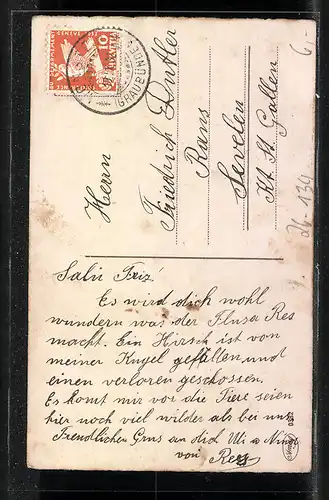 10
(GRAUBÜNDEN)
6.-
Herrn
Friedrich
Rans
Sevelen
Kt St. Gallen
Salü Friz!
Es wird dich wohl
wundern was der Res
macht. Ein Hirsch ist von
meiner Kugel gefallen und
einen verloren geschossen.
Es komt mir vor die Tiere seien
hier noch viel wilder als bei uns
Freundlichen Grus an dich Uli u Nina
von Res